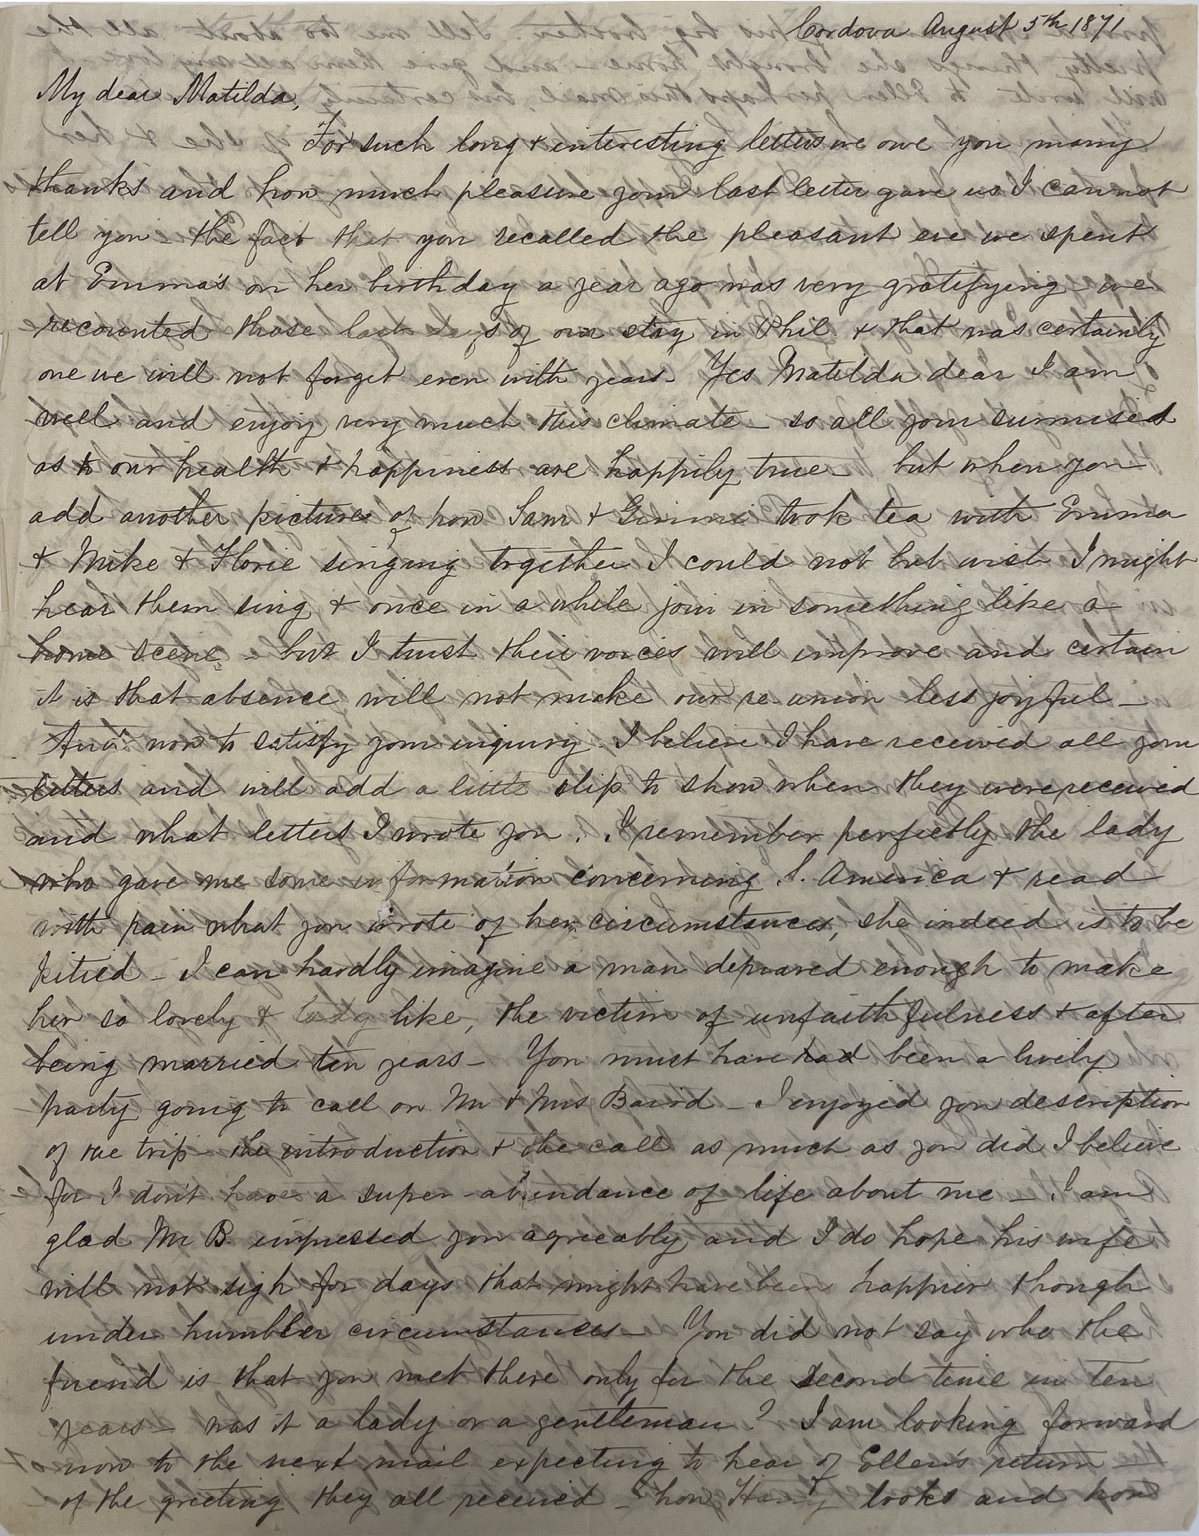 Cordova August 5th 1871
My dear Matilda,
For such long & interesting letters we owe you many
thanks and how much pleasure your last letter gave us I cannot
tell you – the fact that you recalled the pleasant eve we spent
at Emma's on her birthday a year ago was very gratifying we
recounted those last days of our stay in Phil & that was certainly
one we will not forget even with years – Yes Matilda dear I am
well and enjoy very much this climate – so all your surmised
as to our health & happiness are happily true – but when you
add another picture of how Sam & took tea with Emma
& Mike & Florie singing together I could not but wish I might
hear them sing & once in a while join in something like a
home scene – but I trust their voices will improve and certain
it is that absence will not make our re-union less joyful –
And now to satisfy your inquiry. I believe I have received all your
letters and will add a little slip to show when they were received
and what letters I wrote you. I remember perfectly the lady
who gave me some information concerning S. America & read
with pain what you wrote of her circumstances, she indeed is to be
pitied – I can hardly imagine a man depraved enough to make
her so lovely & lady like, the victim of unfaithfulness & after
being married ten years – You must have had been a lively
party going to call on Mr & Mrs Baird – I enjoyed your description
of the trip – the introduction & the call as much as you did I believe
for I don't have a super-abundance of life about me – I am
glad Mr B. impressed you agreeably and I do hope his wife
will not sigh for days that might have been happier though
under humbler circumstances – You did not say who the
friend is that you met there only for the second time in ten
years – was it a lady or a gentleman? I am looking forward
now to the next mail expecting to hear of Ellen's return
of the greeting they all received – how Harry looks and how